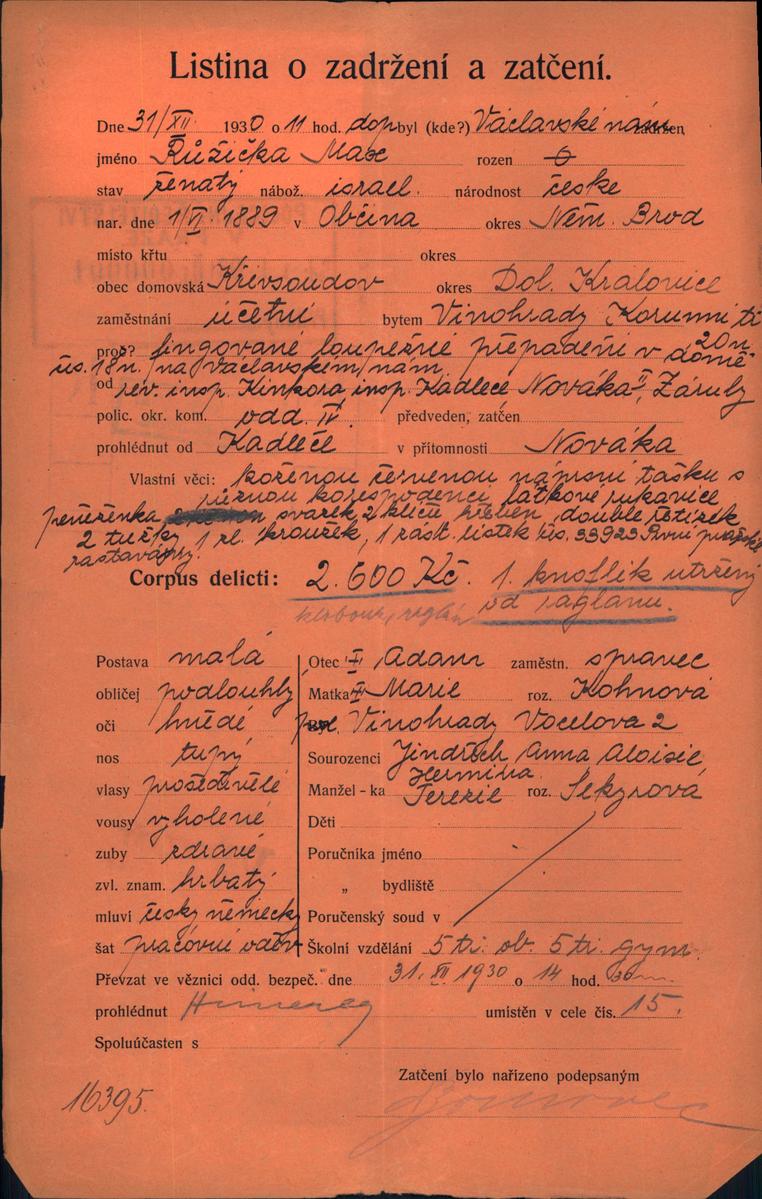 Listina o zadržení a zatčení.
Dne 31/XII. 1930 o 11 hod. dop byl (kde?) Václavské nám. zadržen
jméno Růžička Max rozen
stav ženatý nábož. israel. národnost české
nar. dne 1/VI. 1889 v Občina okres Něm. Brod
místo křtu okres
obec domovská Křivsoudov okres Dol. Kralovice
zaměstnání účetní bytem Vinohrady Korunní tř
20 n
proč? fingované loupežné přepadení v domě
čís. 18 n. /na Václavském nám.
od rev. insp. Kinkora, insp. Kadlece Nováka I, Záruby
polic. okr. kom. odd. IV. předveden, zatčen
prohlédnut od Kadleče v přítomnosti Nováka
Vlastní věci: koženou červenou náprsní tašku s
různou korespodencí, látkové rukavice
peněženka, svazek 2 klíčů hřeben, double řetízek
2 tužky, 1 zl. kroužek, 1 zást. lístek čís. 33923 První pražské
zastavárny.
Corpus delicti: 2.600 Kč. 1. knoflík utržený
klobouk, raglán od raglanu.
Postava malá
obličej podlouhlý
oči hnědé
nos tupý
vlasy prošedivělé
vousy vyholené
zuby zdravé
zvl. znam. hrbatý
mluví česky německy
šat pracovní oděv
Otec Adam zaměstn. spravec
Matka Marie roz. Kohnová
Vinohrady Vocelova 2
Sourozenci Jindřich Anna Aloisie
Hermina
Manžel-ka Terezie roz. Sekyrová
Děti
Poručníka jméno
„ bydliště
Poručenský soud v
Školní vzdělání 5 tř. ob. 5 tř. gym.
Převzat ve věznici odd. bezpeč. dne 31. XII 1930 o 14 hod. 30 m.
prohlédnut umístěn v cele čís. 15.
Spoluúčasten s
Zatčení bylo nařízeno podepsaným
16395.